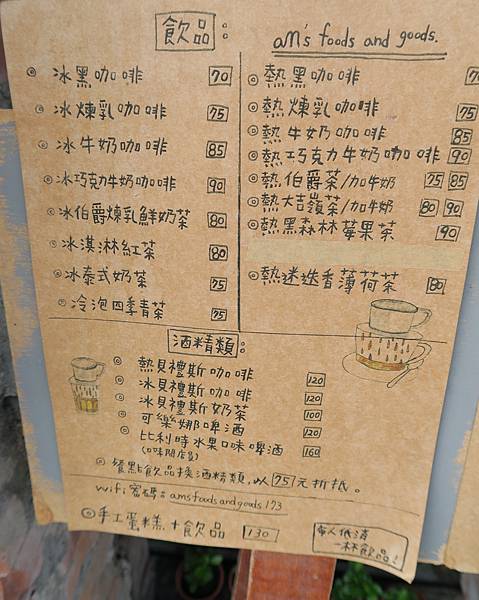 飲品:
am's foods and goods.
◎ 冰黑咖啡 70
◎ 冰煉乳咖啡 75
◎ 冰牛奶咖啡 85
◎ 冰巧克力牛奶咖啡 90
◎ 冰伯爵煉乳鮮奶茶 80
◎ 冰淇淋紅茶 80
◎ 冰泰式奶茶 75
◎ 冷泡四季青茶 75
◎ 熱黑咖啡
◎ 熱煉乳咖啡 75
◎ 熱牛奶咖啡 85
◎ 熱巧克力牛奶咖啡 90
◎ 熱伯爵茶/加牛奶 75 85
◎ 熱大吉嶺茶/加牛奶 80 90
◎ 熱黑森林莓果茶 90
◎ 熱迷迭香薄荷茶 80
酒精類:
◎ 熱貝禮斯咖啡 120
◎ 冰貝禮斯咖啡 120
◎ 冰貝禮斯奶茶 100
◎ 可樂娜啤酒 120
◎ 比利時水果口味啤酒 160
(口味問店員)
◎ 餐點飲品換酒精類,以75元折抵。
wifi密碼:amsfoodsandgoods173
◎手工蛋糕+飲品 130
每人低消
一杯飲品!